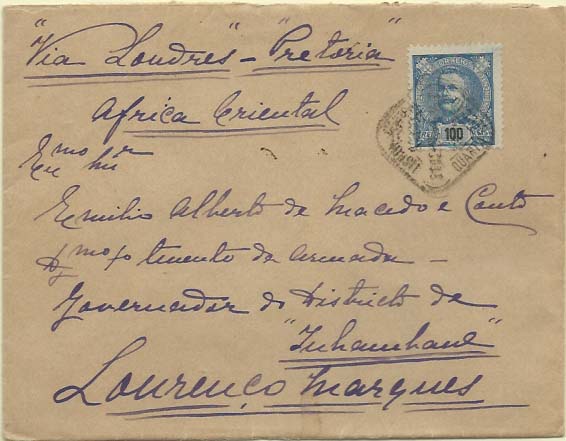 "Via Londres" - "Pretoria"
Africa Oriental
Exmo Snr
Emilio Alberto de Macedo e Couto
Dmo 1º tenente da armada -
Governador do Districto de
"Inhambane"
Lourenço Marques
100